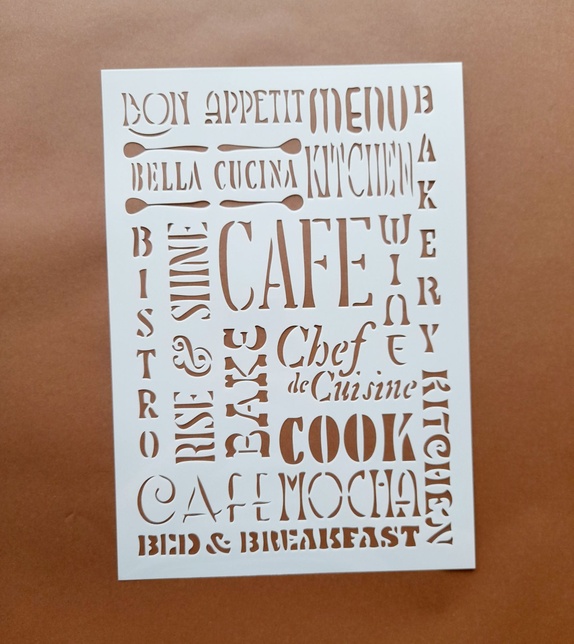 BON APPETIT
MENU
BAKERY
BELLA CUCINA
KITCHEN
BISTRO
RISE & SHINE
CAFE
WINE
BAKE
Chef
de Cuisine
COOK
KITCHEN
CAFE MOCHA
BED & BREAKFAST